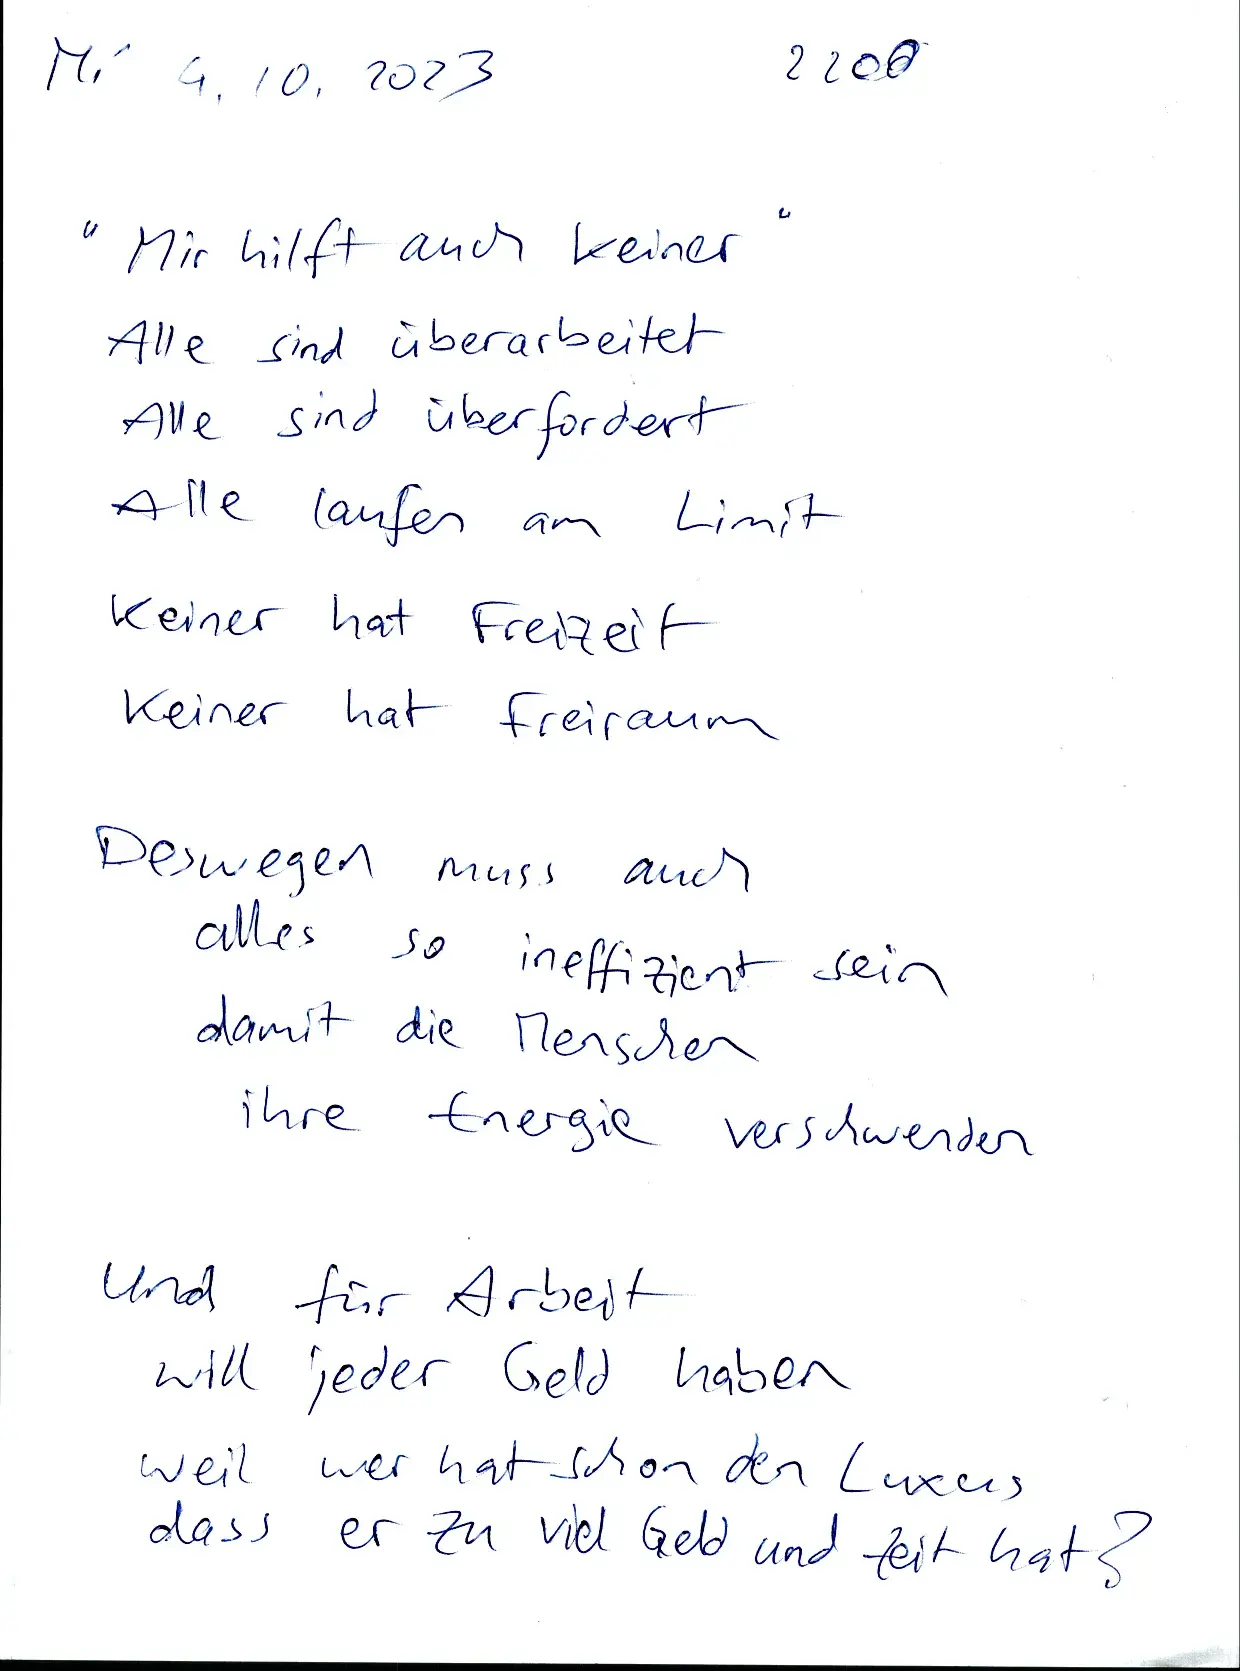 Mi 4.10.2023 2200
"Mir hilft auch keiner"
Alle sind überarbeitet
Alle sind überfordert
Alle laufen am Limit
Keiner hat Freizeit
Keiner hat Freiraum
Deswegen muss auch
alles so ineffizient sein
damit die Menschen
ihre Energie verschwenden
Und für Arbeit
will jeder Geld haben
weil wer hat schon den Luxus
dass er zu viel Geld und Zeit hat?